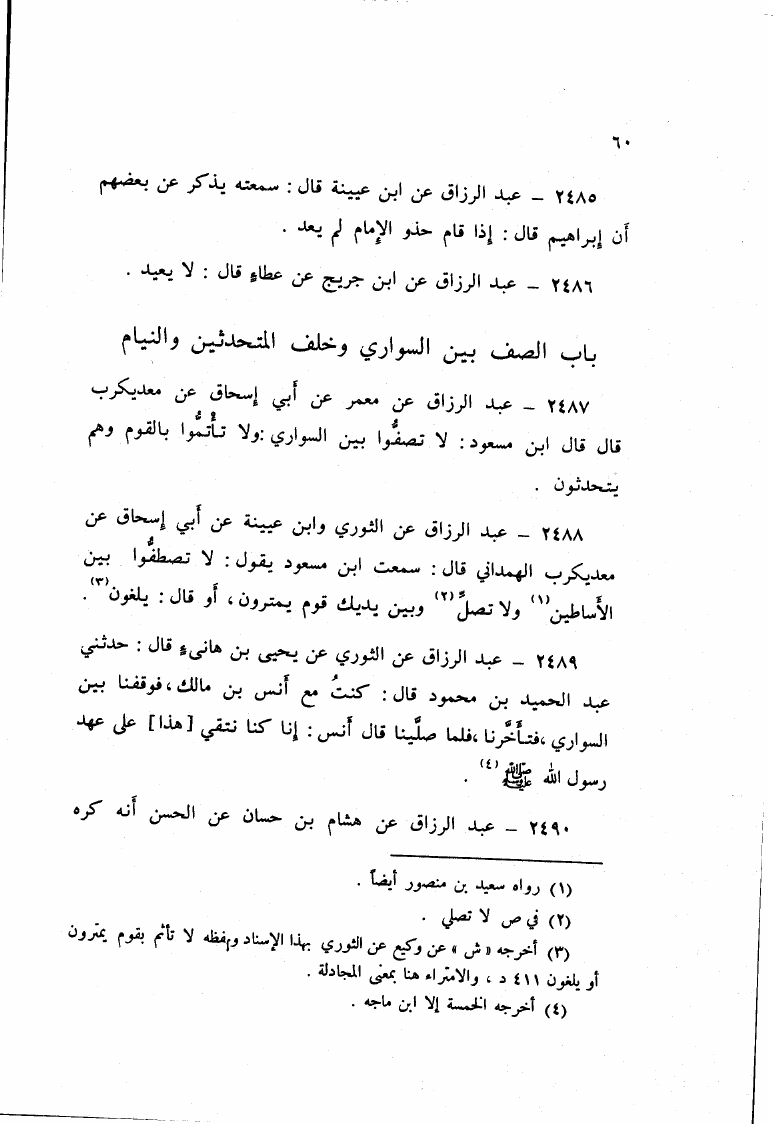 ٦٠
٢٤٨٥ – عبد الرزاق عن ابن عيينة قال : سمعته يذكر عن بعضهم
أن إبراهيم قال : إذا قام حذو الإمام لم يعد .
٢٤٨٦ – عبد الرزاق عن ابن جريج عن عطاءٍ قال : لا يعيد .
باب الصف بين السواري وخلف المتحدثين والنيام
٢٤٨٧ – عبد الرزاق عن معمر عن أبي إسحاق عن معديكرب
قال قال ابن مسعود : لا تصفُّوا بين السواري :ولا تأْتمُّوا بالقوم وهم
يتحدثون .
٢٤٨٨ – عبد الرزاق عن الثوري وابن عيينة عن أبي إسحاق عن
معديكرب الهمداني قال : سمعت ابن مسعود يقول : لا تصطفُّوا بين
الأساطين(١) ولا تصلِّ(٢) وبين يديك قوم يمترون، أو قال : يلغون(٣).
٢٤٨٩ – عبد الرزاق عن الثوري عن يحيى بن هانىءٍ قال : حدثني
عبد الحميد بن محمود قال : كنتُ مع أنس بن مالك ،فوقفنا بين
السواري ،فتأَخَّرنا ،فلما صلَّينا قال أنس : إنا كنا نتقي [هذا] على عهد
رسول الله ﷺ (٤) .
٢٤٩٠ – عبد الرزاق عن هشام بن حسان عن الحسن أنه كره
(١) رواه سعيد بن منصور أيضاً .
(٢) في ص لا تصلي .
(٣) أخرجه « ش » عن وكيع عن الثوري بهذا الإسناد ولفظه لا تأتم بقوم يمترون
أو يلغون ٤١١ د ، والامتراء هنا بمعنى المجادلة .
(٤) أخرجه الخمسة إلا ابن ماجه .